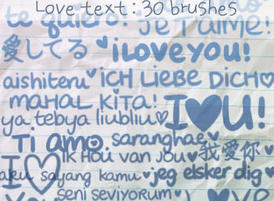 Love text: 30 brushes
te quiero! je t'aime!
愛してる iloveyou!
aishiteru iCH LiEBE DiCH
MAHAL KiTA! I ♥ U!
ya tebya liubliu
Ti amo saranghae 我爱你
I ♥ ik Hou van jou
aku sayang kamu jeg elsker dig
seni seviyorum